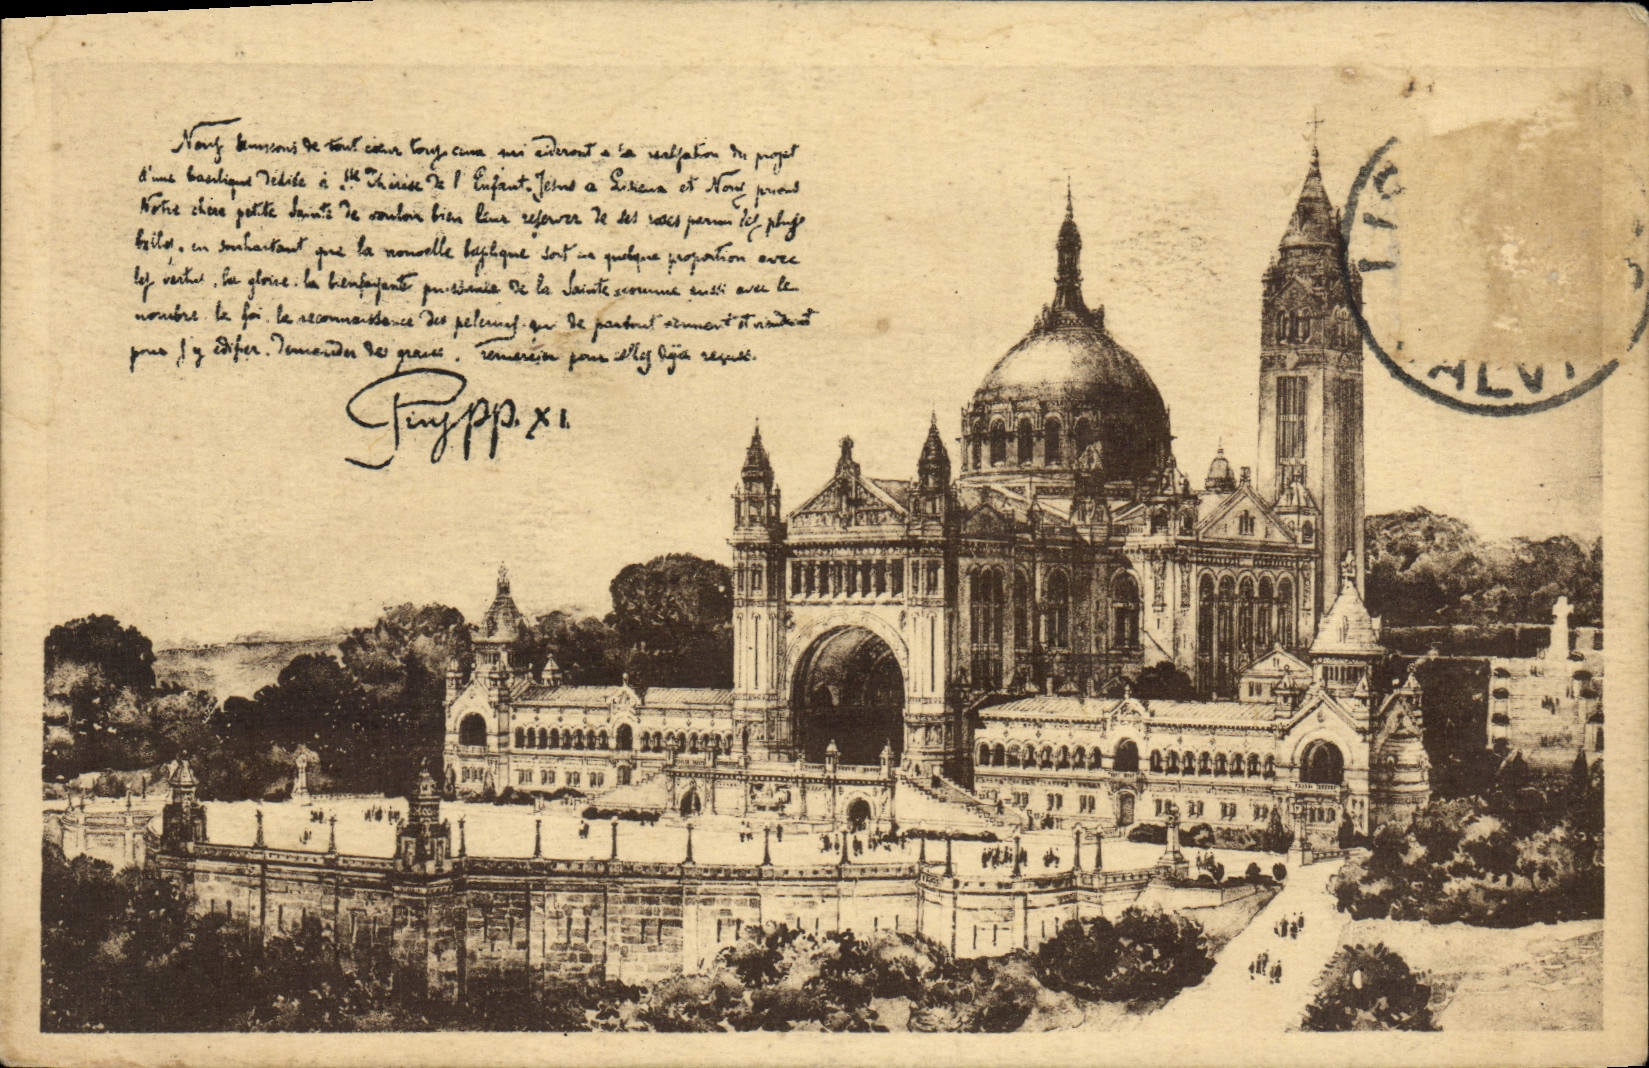 Nous bénissons de tout cœur tous ceux qui aideront a la realisation du projet
d'une basilique dédiée à Ste Thérèse de l'Enfant-Jesus a Lisieux et Nous prions
Notre chère petite Sainte de vouloir bien leur reserver de ses roses parmi les plus
belles, en souhaitant que la nouvelle basilique soit en quelque proportion avec
les vertus, la gloire, la bienfaisante puissance de la Sainte, comme aussi avec le
nombre, la foi, la reconnaissance des pelerins qui de partout viennent et viendront
pour s'y édifier, demander des graces, remercier pour celles déja reçues.
Pius PP. XI.
LIS
CALV